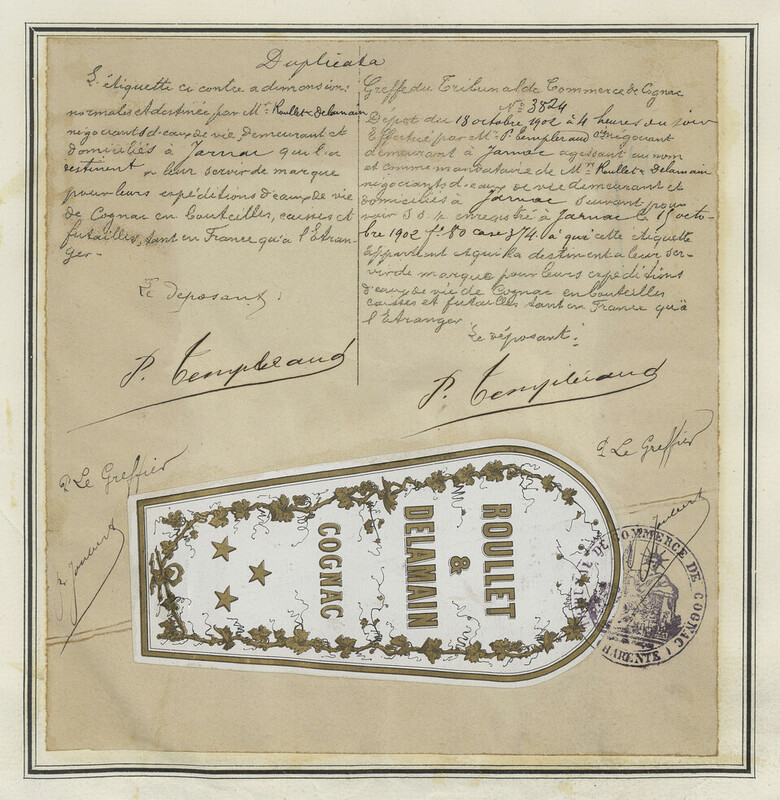 Duplicata
L'étiquette ci contre a dimensions
normales et destinée par Mrs Roullet & Delamain
négociants d'eaux de vie, demeurant et
domiciliés à Jarnac qui la
destinent a leur servir de marque
pour leurs expéditions d'eaux de vie
de Cognac en bouteilles, caisses et
futailles, tant en France qu'à l'Etran-
ger -
Le déposant:
P. Templéraud
Greffe du Tribunal de Commerce de Cognac
No 3824
Dépôt du 18 octobre 1902 à 4 heures du soir
Effectué par Mr P. Templeraud négociant
demeurant à Jarnac agissant au nom
et comme mandataire de Mrs Roullet & Delamain
négociants d'eaux de vie demeurant et
domiciliés à Jarnac suivant pou-
voir enregistré à Jarnac le octo-
bre 1902 fo 80 case 374 à qui cette étiquette
appartient et qui la destinent a leur ser-
vir de marque pour leurs expéditions
d'eaux de vie de Cognac en bouteilles
caisses et futailles tant en France qu'à
l'Etranger
Le déposant:
P. Templéraud
P. Le Greffier
P. Le Greffier
ROULLET
&
DELAMAIN
COGNAC
COMMERCE DE COGNAC
CHARENTE